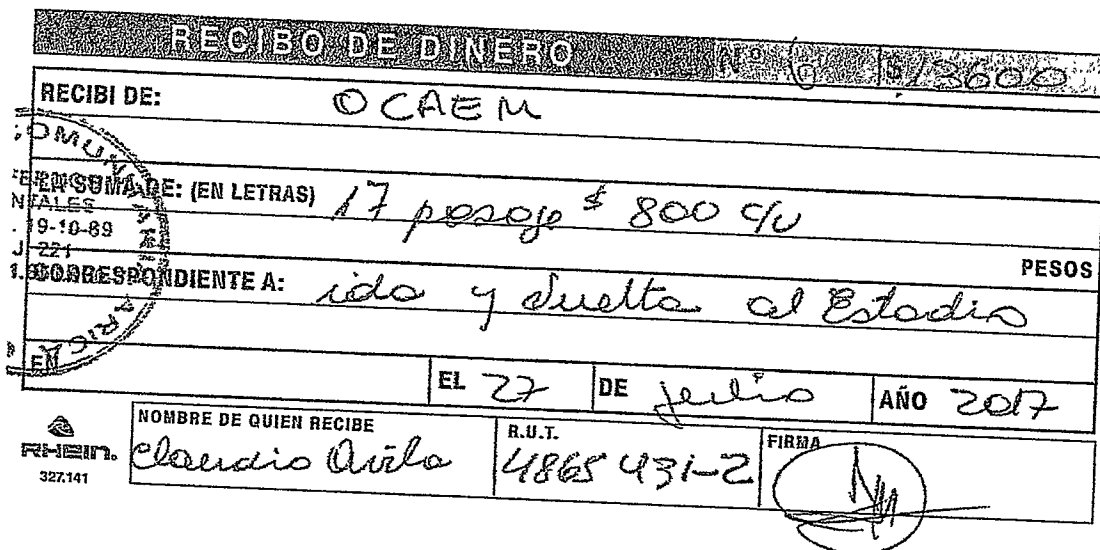 RECIBO DE DINERO Nº 6 $ 13600
RECIBI DE: OCAEM
LA SUMA DE: (EN LETRAS) 17 pasaje $ 800 c/u
PESOS
CORRESPONDIENTE A: ida y Vuelta al Estadio
EN EL 27 DE julio AÑO 2017
RHEIN.
327.141
NOMBRE DE QUIEN RECIBE
Claudio Avila
R.U.T.
4865431-2
FIRMA
COMUN
NTALES
19-10-89
J 221
ARICA